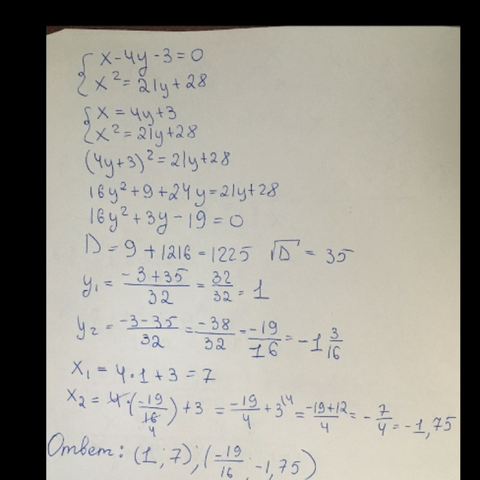 { x - 4y - 3 = 0
{ x² = 21y + 28
{ x = 4y + 3
{ x² = 21y + 28
(4y + 3)² = 21y + 28
16y² + 9 + 24y = 21y + 28
16y² + 3y - 19 = 0
D = 9 + 1216 = 1225 √D = 35
y₁ = (-3 + 35)/32 = 32/32 = 1
y₂ = (-3 - 35)/32 = -38/32 = -19/16 = -1 3/16
x₁ = 4 · 1 + 3 = 7
x₂ = 4 · (-19/16) + 3 = -19/4 + 3 = (-19 + 12)/4 = -7/4 = -1,75
Ответ: (1; 7); (-19/16; -1,75)